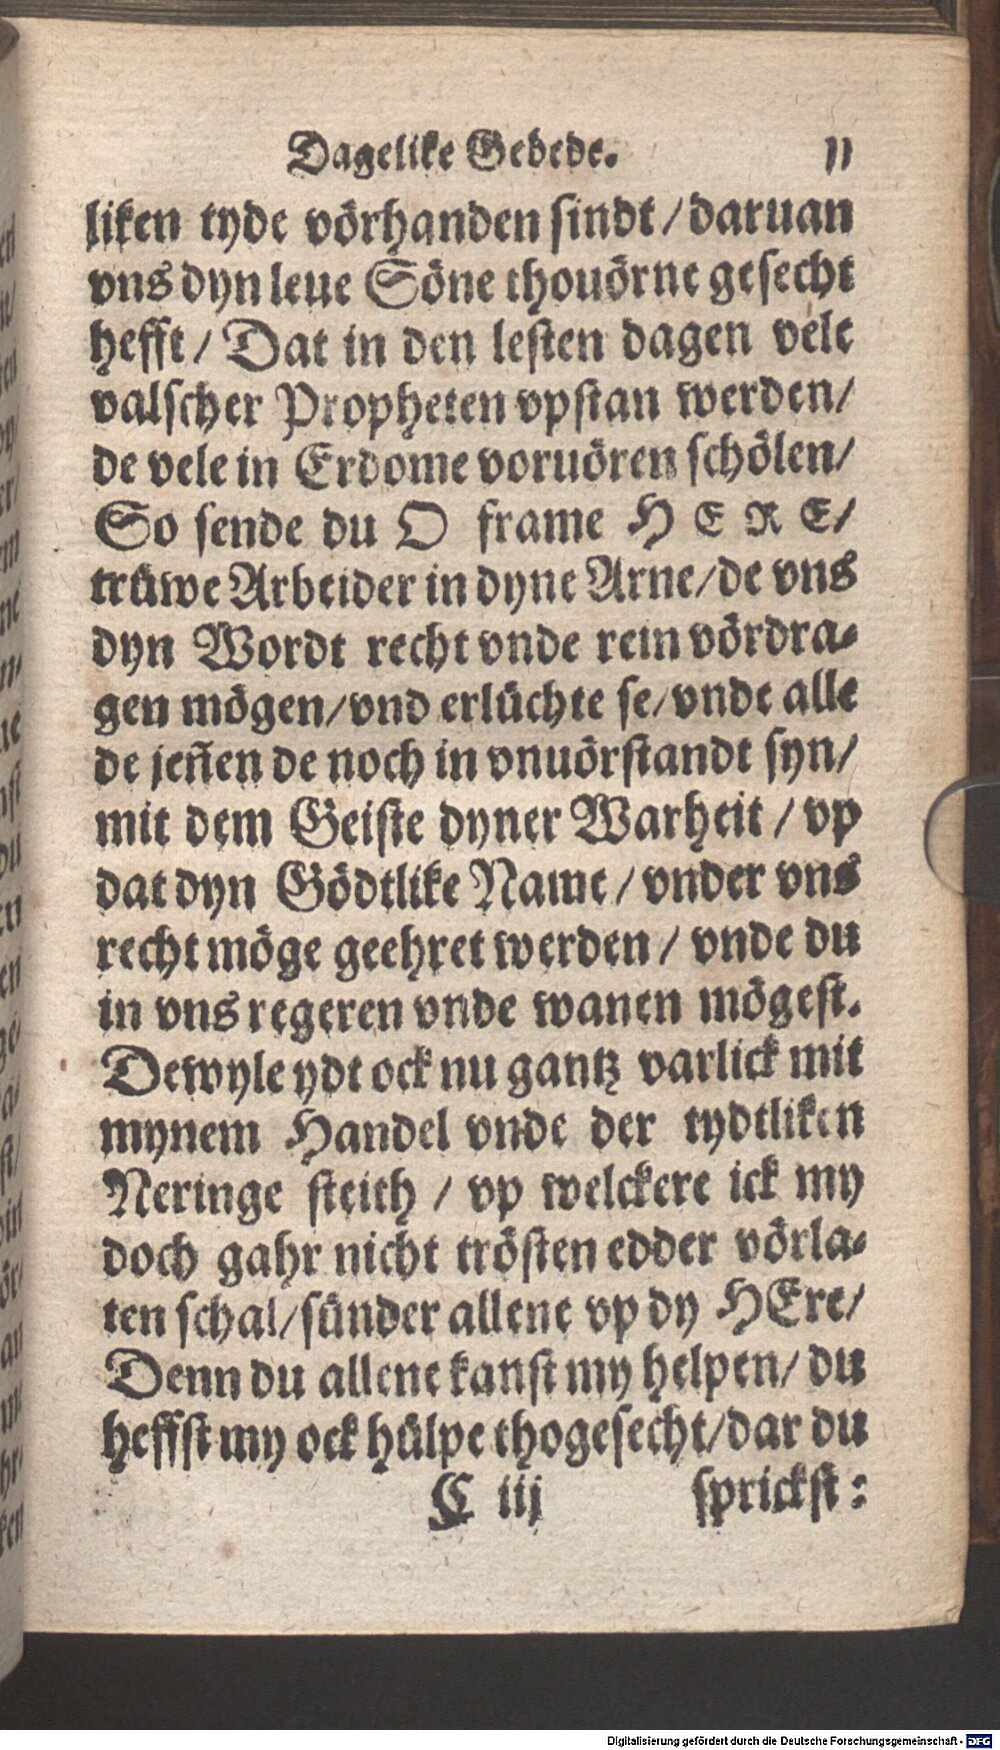 Dagelike Gebede. 11
liken tyde vörhanden sindt / daruan
vns dyn leue Söne thouörne gesecht
hefft / Dat in den lesten dagen vele
valscher Propheten vpstan werden /
de vele in Erdome voruören schölen /
So sende du O frame HERE /
trüwe Arbeider in dyne Arne / de vns
dyn Wordt recht vnde rein vördra-
gen mögen / vnd erlüchte se / vnde alle
de jeñen de noch in vnuörstandt syn /
mit dem Geiste dyner Warheit / vp
dat dyn Gödtlike Name / vnder vns
recht möge geehret werden / vnde du
in vns regeren vnde wanen mögest.
Dewyle ydt ock nu gantz varlick mit
mynem Handel vnde der tydtliken
Neringe steith / vp welckere ick my
doch gahr nicht trösten edder vörla-
ten schal / sünder allene vp dy HEre /
Denn du allene kanst my helpen / du
heffst my ock hülpe thogesecht / dar du
C iij sprickst :
Digitalisierung gefördert durch die Deutsche Forschungsgemeinschaft - DFG